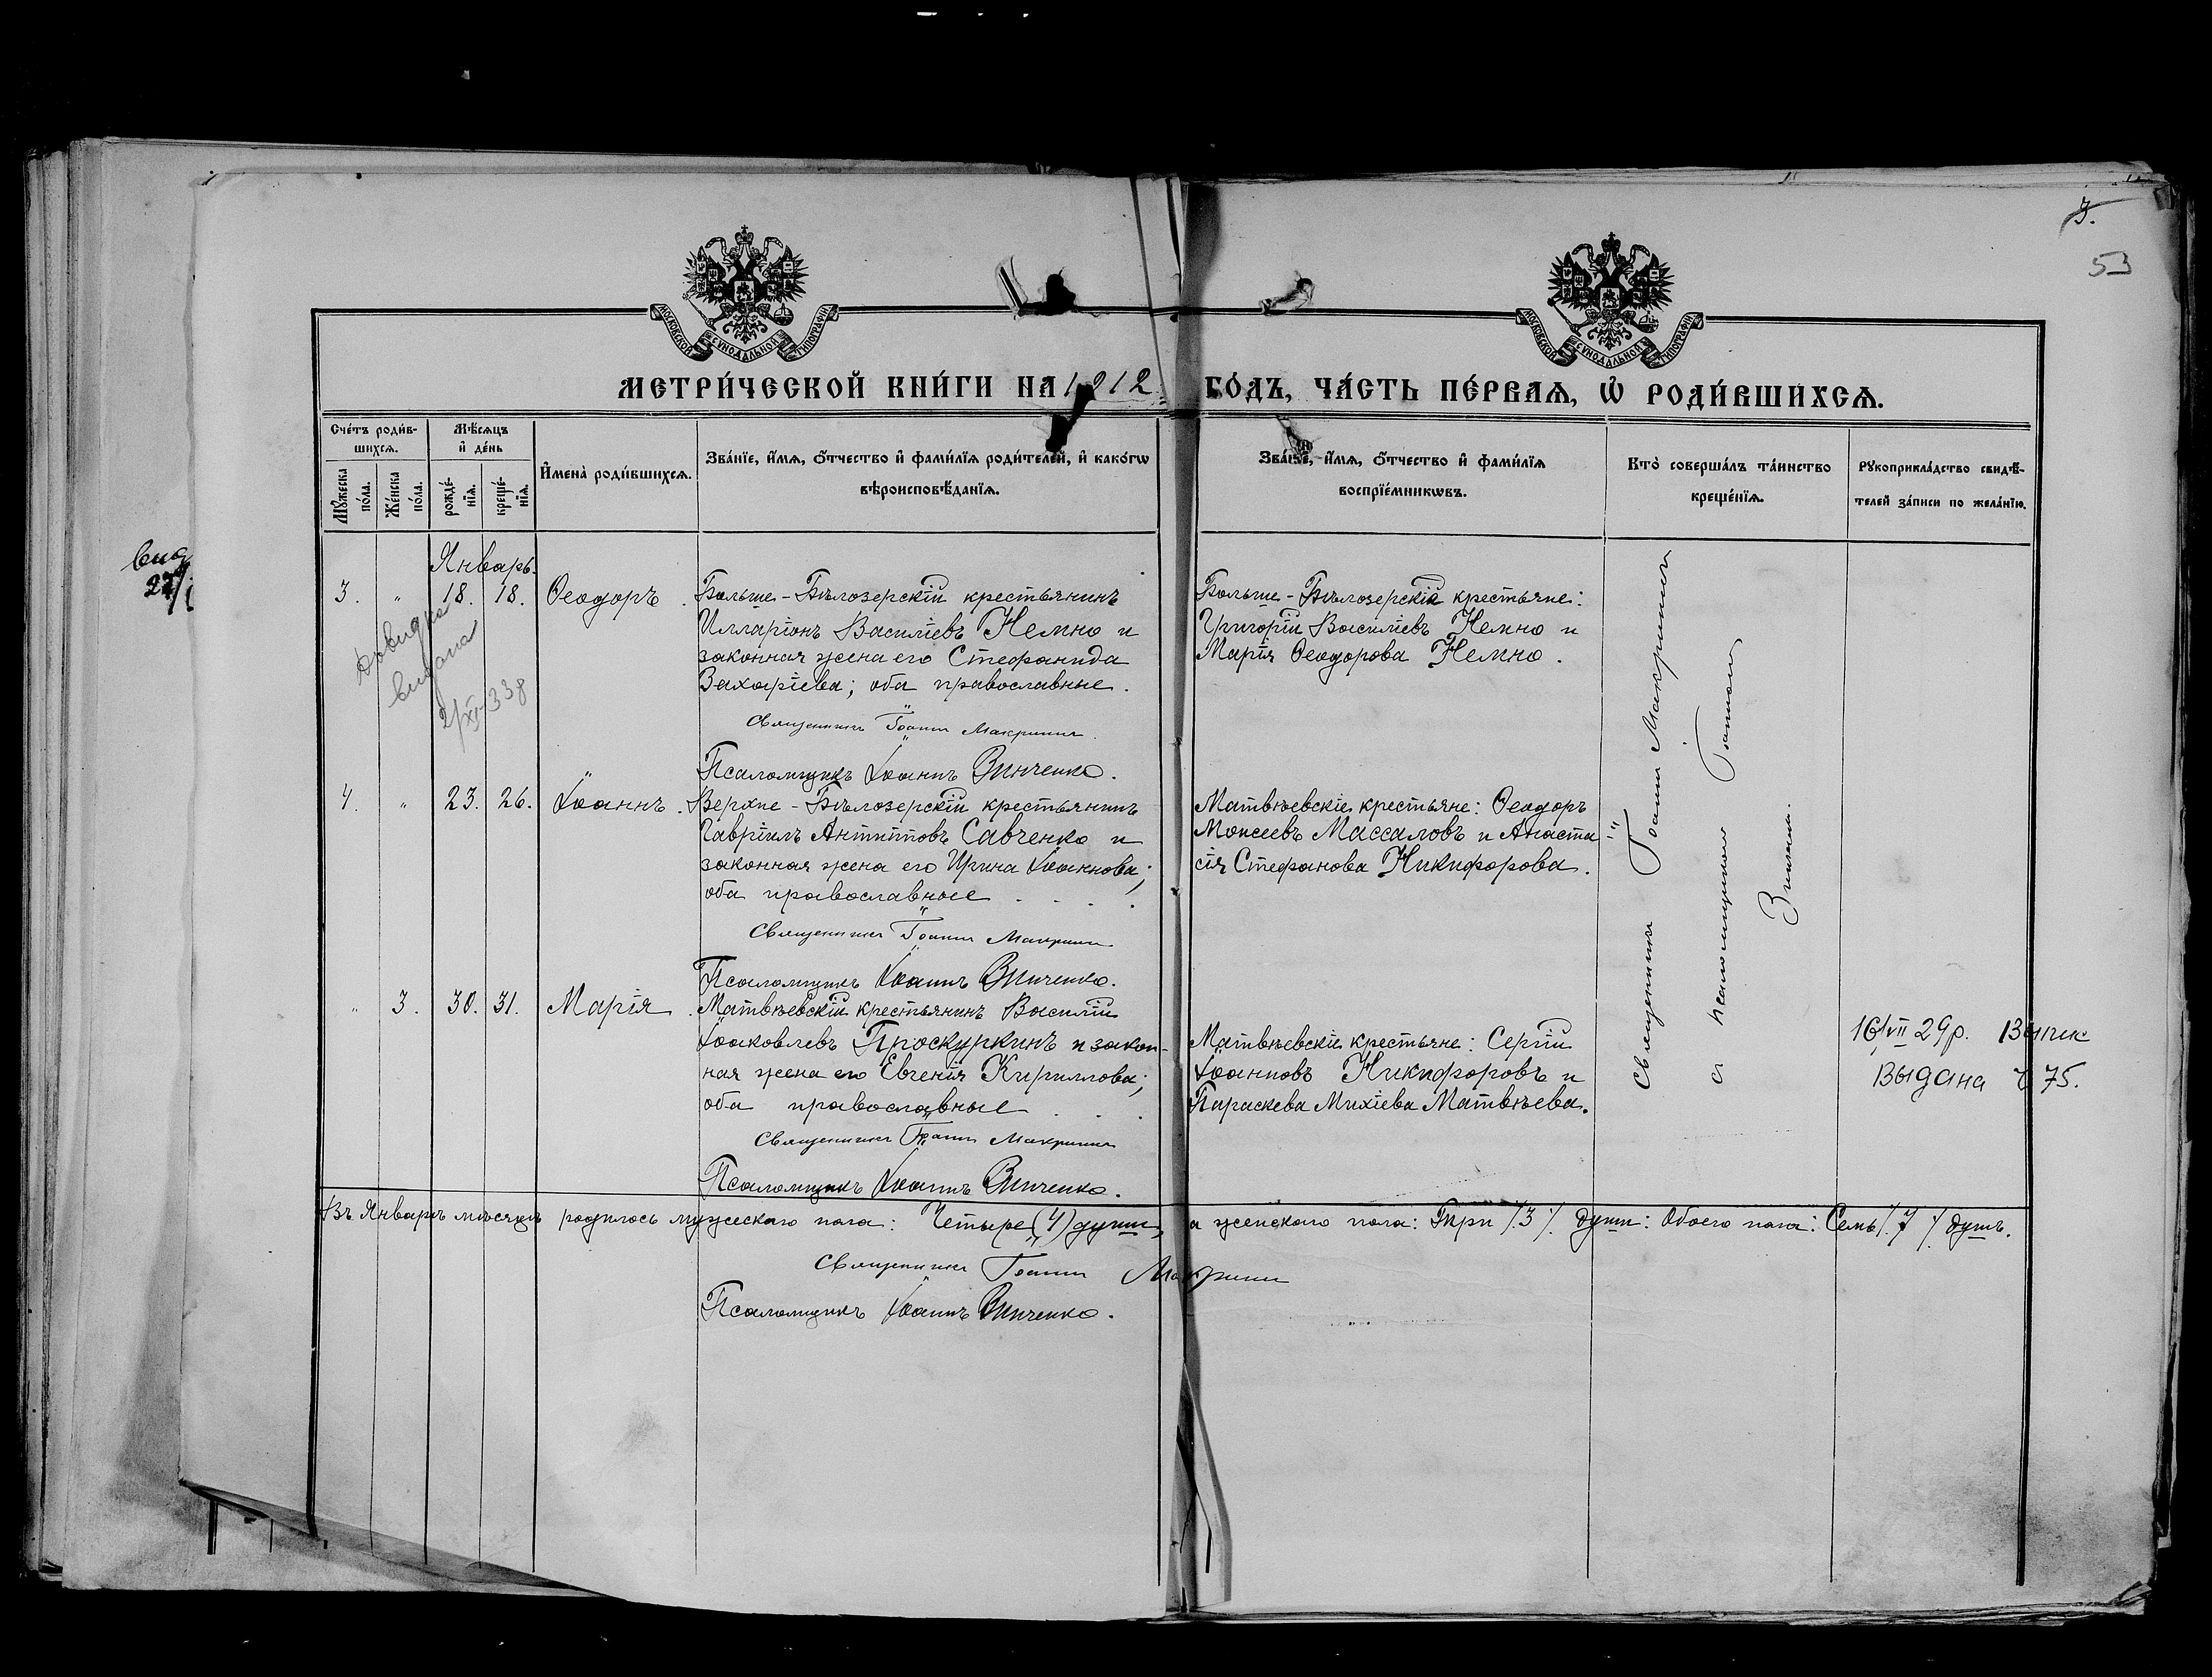 3.
53
МОСКОВСКОЙ СѴНОДАЛЬНОЙ ТИПОГРАФІИ
МОСКОВСКОЙ СѴНОДАЛЬНОЙ ТИПОГРАФІИ
МЕТРИ́ЧЕСКОЙ КНИ́ГИ НА 1912 ГО́ДЪ, ЧА́СТЬ ПЕ́РВАѦ, Ѡ҆ РОДИ́ВШИХСѦ.
Сче́тъ роди́в-
шихсѧ.
Мѣ́сѧцъ
и҆ де́нь
Мꙋ́жеска по́ла.
Же́нска по́ла.
рожде́-
нїѧ.
креще́-
нїѧ.
И҆мена̀ роди́вшихсѧ.
Зва́нїе, и҆́мѧ, ѻ҆́тчество и҆ фами́лїѧ роди́телей, и҆ како́гѡ
вѣроисповѣ́данїѧ.
Зва́нїе, и҆́мѧ, ѻ҆́тчество и҆ фами́лїѧ
воспрїе́мникѡвъ.
Кто̀ соверша́лъ та́инство
креще́нїѧ.
Рꙋкоприкла́дство свидѣ́-
телей за́писи по жела́нїю.
вид
27/
Январь.
3. " 18. 18. Ѳеодоръ. Больше-Бѣлозерскій крестьянинъ
Илларіонъ Василіевъ Немно и
законная жена его Стефанида
Захаріева; оба православные.
Священникъ Іоаннъ Макринин
Псаломщикъ Іоаннъ Зинченко.
Довидка
видана
2/XI-33 р
Больше-Бѣлозерскіе крестьяне:
Григорій Василіевъ Немно и
Марія Ѳеодорова Немно.
4. " 23. 26. Іоаннъ. Верхне-Бѣлозерскій крестьянинъ
Гавріилъ Антиповъ Савченко и
законная жена его Ирина Іоаннова;
оба православные
Священникъ Іоаннъ
Псаломщикъ Іоаннъ Зинченко.
Матвѣевскіе крестьяне: Ѳеодоръ
Моисеевъ Массаловъ и Анаста-
сія Стефанова Никифорова.
" 3. 30. 31. Марія. Матвѣевскій крестьянинъ Василій
Іаковлевъ Проскуркинъ и закон-
ная жена его Евгенія Кириллова;
оба православные
Священникъ Іоаннъ
Псаломщикъ Іоаннъ Зинченко.
Матвѣевскіе крестьяне: Сергій
Іоанновъ Никифоровъ и
Параскева Михіева Матвѣева.
Священникъ Іоаннъ
и псаломщикъ Іоаннъ
Зинченко.
16/VII 29р. Выпис
Выдана 75.
Въ Январѣ мѣсяцѣ родилось мужескаго пола: Четыре (4) души, а женскаго пола: Три /.3 /. души: Обоего пола: Семь /.7 /. душъ.
Священникъ Іоаннъ
Псаломщикъ Іоаннъ Зинченко.